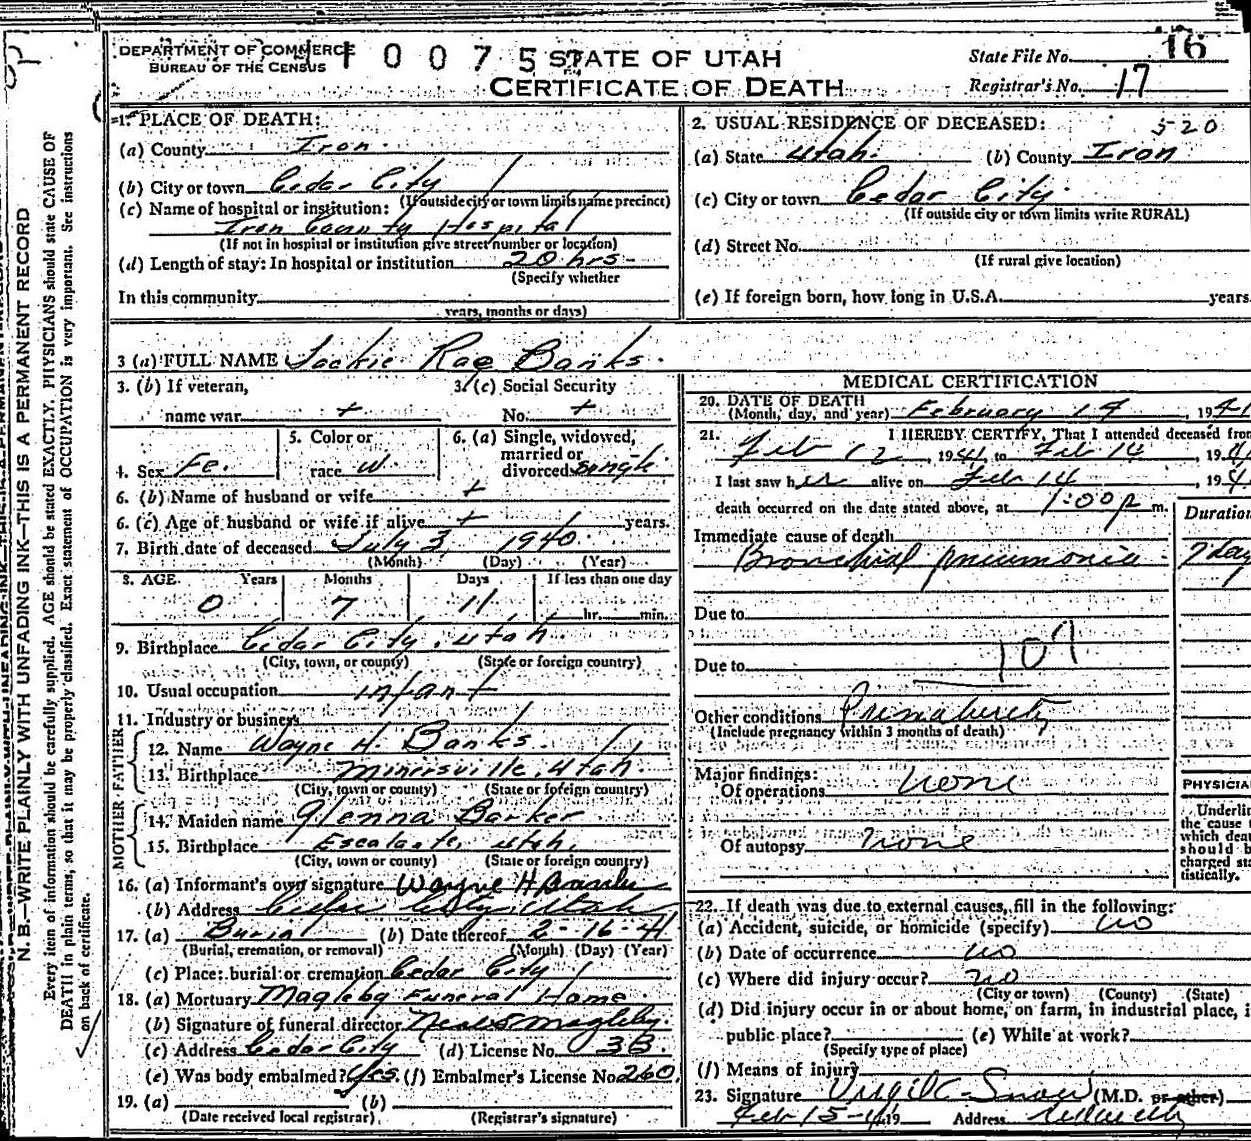 DEPARTMENT OF COMMERCE
BUREAU OF THE CENSUS
0 0 7 5
STATE OF UTAH
CERTIFICATE OF DEATH
State File No. 16
Registrar's No. 17
N. B.—WRITE PLAINLY WITH UNFADING INK—THIS IS A PERMANENT RECORD
Every item of information should be carefully supplied. AGE should be stated EXACTLY. PHYSICIANS should state CAUSE OF
DEATH in plain terms, so that it may be properly classified. Exact statement of OCCUPATION is very important. See instructions
on back of certificate.
1. PLACE OF DEATH:
(a) County Iron
(b) City or town Cedar City
(If outside city or town limits name precinct)
(c) Name of hospital or institution:
Iron County Hospital
(If not in hospital or institution give street number or location)
(d) Length of stay: In hospital or institution 20 hrs-
(Specify whether
In this community
years, months or days)
2. USUAL RESIDENCE OF DECEASED: 520
(a) State Utah. (b) County Iron
(c) City or town Cedar City.
(If outside city or town limits write RURAL)
(d) Street No.
(If rural give location)
(e) If foreign born, how long in U.S.A. years.
3 (a) FULL NAME Jackie Rae Banks.
3. (b) If veteran, name war +
3. (c) Social Security No. +
4. Sex Fe.
5. Color or race W.
6. (a) Single, widowed, married or divorced single
6. (b) Name of husband or wife +
6. (c) Age of husband or wife if alive + years.
7. Birth date of deceased July 3, 1940.
(Month) (Day) (Year)
8. AGE Years Months Days If less than one day
0 7 11 hr. min.
9. Birthplace Cedar City, Utah.
(City, town, or county) (State or foreign country)
10. Usual occupation infant
11. Industry or business
FATHER
12. Name Wayne H. Banks.
13. Birthplace Minersville, Utah.
(City, town or county) (State or foreign country)
MOTHER
14. Maiden name Glenna Barker
15. Birthplace Escalante, Utah.
(City, town or county) (State or foreign country)
16. (a) Informant's own signature Wayne H Banks
(b) Address Cedar City, Utah
17. (a) Burial (b) Date thereof 2-16-41
(Burial, cremation, or removal) (Month) (Day) (Year)
(c) Place: burial or cremation Cedar City
18. (a) Mortuary Magleby Funeral Home
(b) Signature of funeral director Neal S Magleby
(c) Address Cedar City (d) License No. 3B.
(e) Was body embalmed? Yes. (f) Embalmer's License No. 260.
19. (a) (b)
(Date received local registrar) (Registrar's signature)
MEDICAL CERTIFICATION
20. DATE OF DEATH
(Month, day, and year) February 14, 1941
21. I HEREBY CERTIFY, That I attended deceased from
Feb 12, 1941, to Feb 14, 194
I last saw her alive on Feb 14, 194
death occurred on the date stated above, at 1:00 p m.
Duration
Immediate cause of death
Bronchial pneumonia 7 day
Due to
Due to 107
Other conditions Prematurety
(Include pregnancy within 3 months of death)
Major findings:
Of operations none
Of autopsy none
PHYSICIA
Underlin
the cause t
which dea
should b
charged sta
tistically.
22. If death was due to external causes, fill in the following:
(a) Accident, suicide, or homicide (specify) no
(b) Date of occurrence no
(c) Where did injury occur? no
(City or town) (County) (State)
(d) Did injury occur in or about home, on farm, in industrial place, i
public place? (e) While at work?
(Specify type of place)
(f) Means of injury
23. Signature (M.D. or other)
Feb 15-41 19 Address